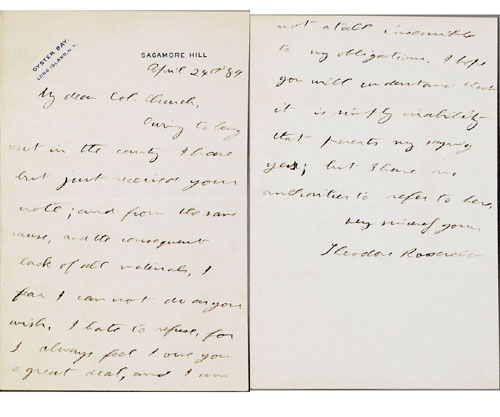 OYSTER BAY,
LONG ISLAND, N.Y.
SAGAMORE HILL
April 24th '89
My dear Col. Church,
Owing to being
out in the country I have
but just received your
note; and from the same
cause, and the consequent
lack of all materials, I
fear I can not do as you
wish. I hate to refuse, for
I always feel I owe you
a great deal, and I am
not at all insensible
to my obligations. I hope
you will understand that
it is simply inability
that prevents my saying
yes; but I have no
authorities to refer to here.
Very sincerely yours
Theodore Roosevelt